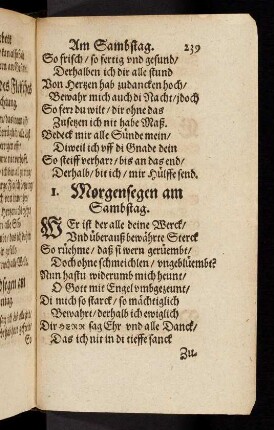 Am Sambstag. 239
So frisch/ so fertig vnd gesund/
Derhalben ich dir alle stund
Von Herzen hab zudancken hoch/
Bewahr mich auch di Nacht/ jdoch
So fern du wilt/ dir ohne das
Zusetzen ich nit habe Maß.
Bedeck mir alle Sünde mein/
Diweil ich vff di Gnade dein
So steiff verharr/ bis an das end/
Derhalb/ bit ich/ mir Hülffe send.
1. Morgensegen am
Sambstag.
WEr ist der alle deine Werck/
Vnd überauß bewährte Sterck
So rüehme/ daß si wern gerüembt/
Doch ohne schmeichlen/ vngeblüembt?
Nun hastu widerumb mich heunt/
O Gott mit Engel vmbgezeunt/
Di mich so starck/ so mächtiglich
Bewahrt/ derhalb ich ewiglich
Dir HERR sag Ehr vnd alle Danck/
Das ich nit in di tieffe sanck
Zu-